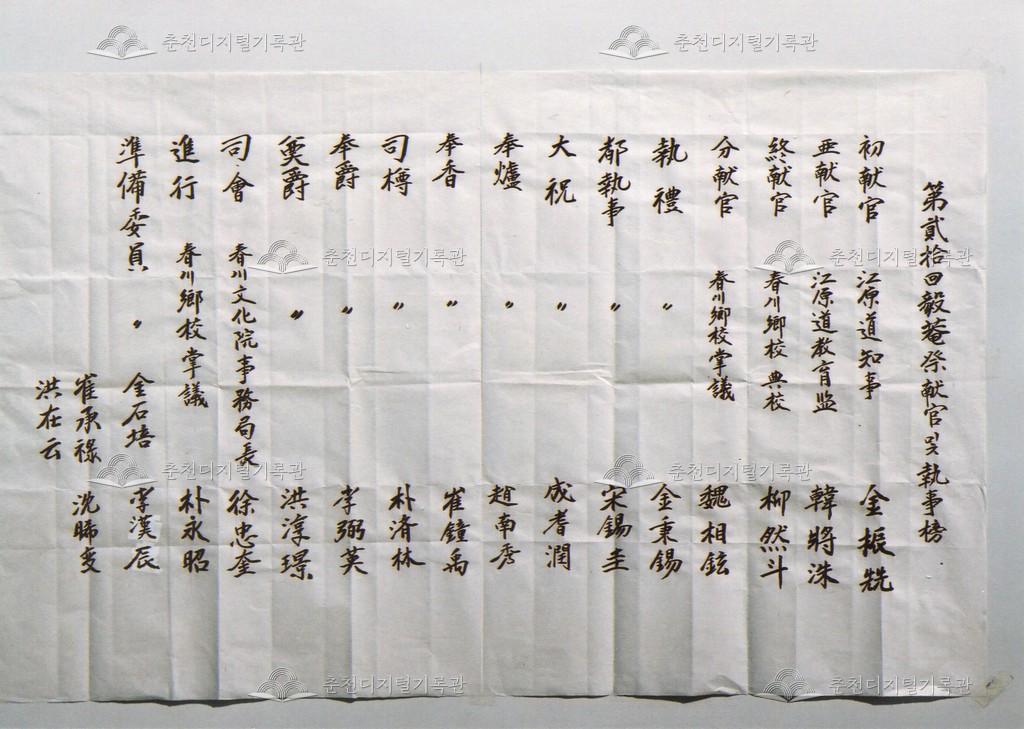 第貳拾回毅菴祭献官 및 執事榜
初献官 江原道知事 金振兟
亞献官 江原道教育監 韓將洙
終献官 春川鄉校典校 柳然斗
分献官 春川鄉校掌議 魏相鉉
執禮 〃 金秉錫
都執事 〃 宋錫圭
大祝 〃 成耆潤
奉爐 〃 趙南秀
奉香 〃 崔鐘禹
司樽 〃 朴済林
奉爵 〃 李弼英
奠爵 〃 洪淳璟
司會 春川文化院事務局長 徐忠奎
進行 春川鄉校掌議 朴永昭
準備委員 〃 金石培 李漢辰
崔承祿 沈
洪在云
춘천디지털기록관
춘천디지털기록관
춘천디지털기록관
춘천디지털기록관
춘천디지털기록관
춘천디지털기록관
춘천디지털기록관
춘천디지털기록관